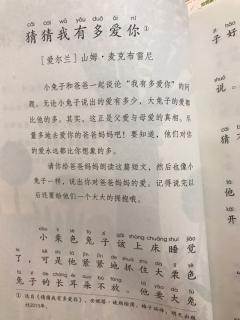 cāi cāi wǒ yǒu duō ài nǐ
猜猜我有多爱你①
[爱尔兰] 山姆·麦克布雷尼
小兔子和爸爸一起谈论“我有多爱你”的问
题。无论小兔子说出的爱有多少，大兔子的爱都
比他的多。其实，这正是父爱与母爱的真相。尽
量多地去爱你的爸爸妈妈吧！要知道，他们对你
的爱永远都比你想象的多。
请你给爸爸妈妈朗读这篇短文，然后也像小
兔子一样，说出你对爸爸妈妈的爱。记得说完以
后还要给他们一个大大的拥抱哦。
xiǎo lì sè tù zi gāi shàng chuáng shuì jiào
小栗色兔子该上床睡觉
了，可是他紧紧地抓住大栗色
兔子的长耳朵不放。他要大兔
① 选自《猜猜我有多爱你》
社2013年。
好
说。
他
开